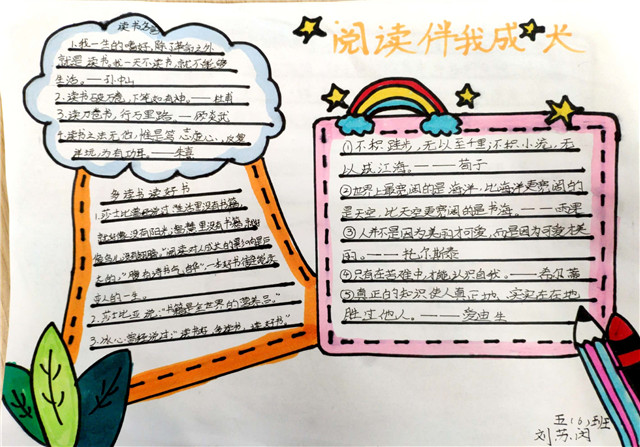 阅读伴我成长
读书名言
1.我一生的嗜好,除了革命之外
就是读书,我一天不读书,就不能够
生活。——孙中山
2.读书破万卷,下笔如有神。——杜甫
3.读万卷书,行万里路。——顾炎武
4.读书之法无他,惟是笃志虚心,反复
详玩,为有功耳。——朱熹
多读书 读好书
1.莎士比亚说过:"生活里没有书籍,
就好像没有阳光;智慧里没有书籍,就好
像鸟儿没有翅膀。"阅读对人成长的影响是巨
大的,"腹有诗书气自华",一本好书往往能改
变人的一生。
2.莎士比亚说:"书籍是全世界的营养品。"
3.冰心曾经说过:"读书好,多读书,读好书"
①不积跬步,无以至千里;不积小流,无
以成江海。———荀子
②世界上最宽阔的是海洋,比海洋更宽阔的
是天空,比天空更宽阔的是书海。——雨果
③人并不是因为美丽才可爱,而是因为可爱才美
丽。——托尔斯泰
④只有在苦难中,才能认识自我。——希尔蒂
⑤真正的知识使人真正地、实实在在地,
胜过他人。———爱迪生
五(6)班
刘芮闵